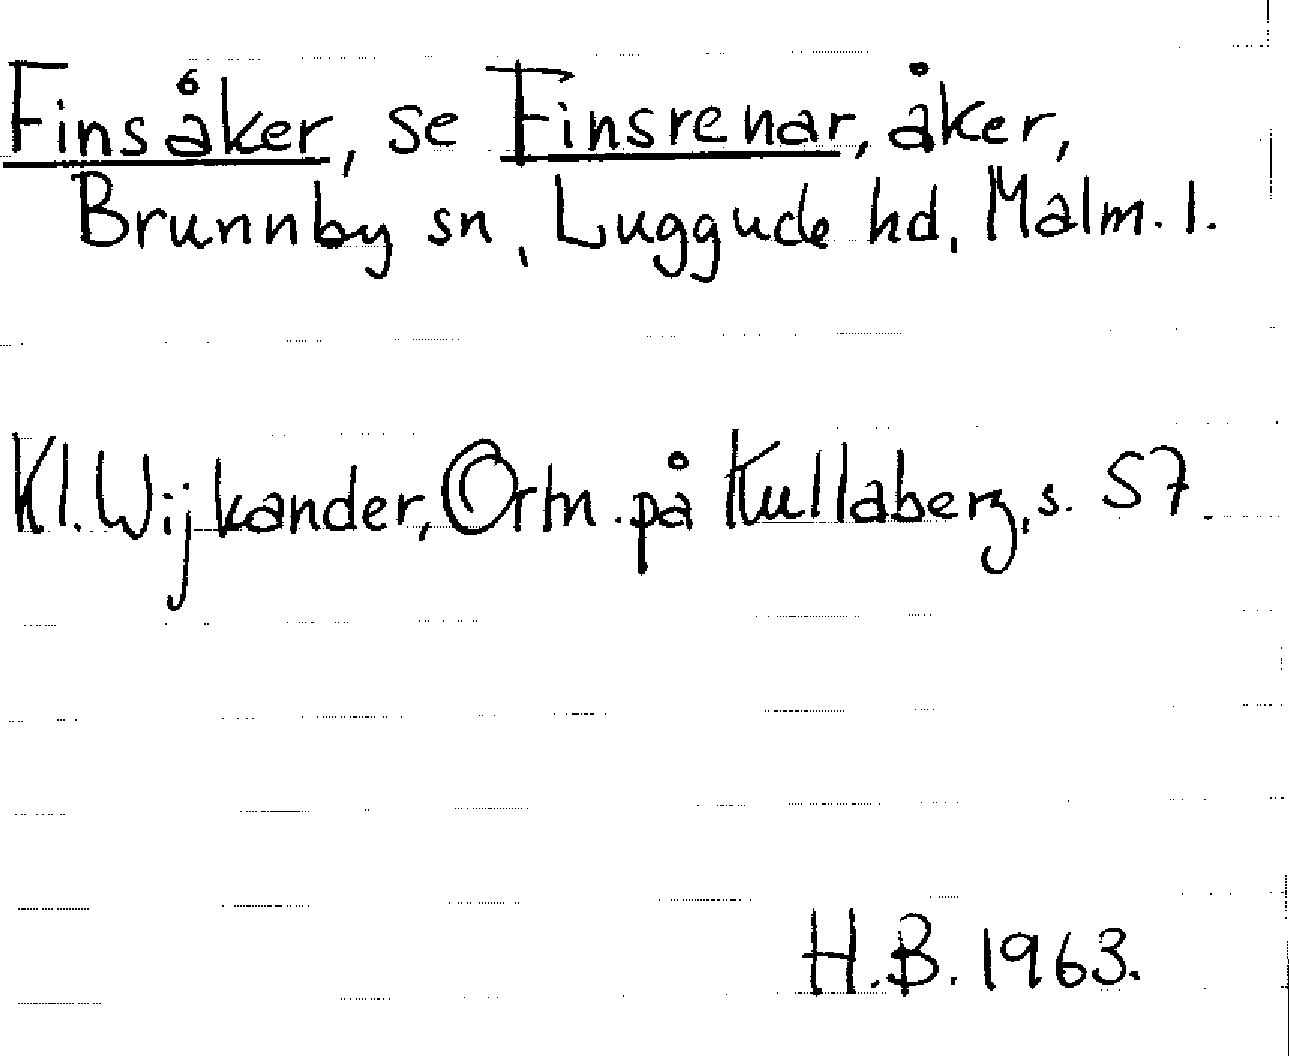 Finsåker, se Finsrenar, åker,
Brunnby sn, Luggude hd, Malm. l.
Kl. Wijkander, Ortn. på Kullaberg, s. 57.
H.B. 1963.